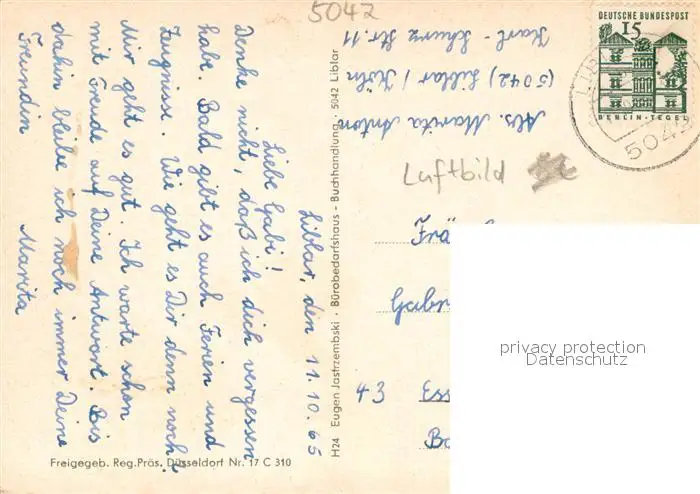 5042
Liblar, den 11.10.65
Liebe Gabi!
Denke nicht, daß ich dich vergessen
habe. Bald gibt es auch Ferien und
Zeugnisse. Wie geht es Dir denn noch?
Mir geht es gut. Ich warte schon
mit Freude auf Deine Antwort. Bis
dahin bleibe ich noch immer Deine
Freundin
Marita
Freigegeb. Reg.Präs. Düsseldorf Nr. 17 C 310
H24 Eugen Jastrzembski · Bürobedarfshaus - Buchhandlung · 5042 Liblar
Abs. Marita Anton
(5042) Liblar / Köln
Karl-Schurz Str. 11
DEUTSCHE BUNDESPOST
15
BERLIN-TEGEL
5042
Luftbild
Frä
Gabr
43 Ess
privacy protection
Datenschutz